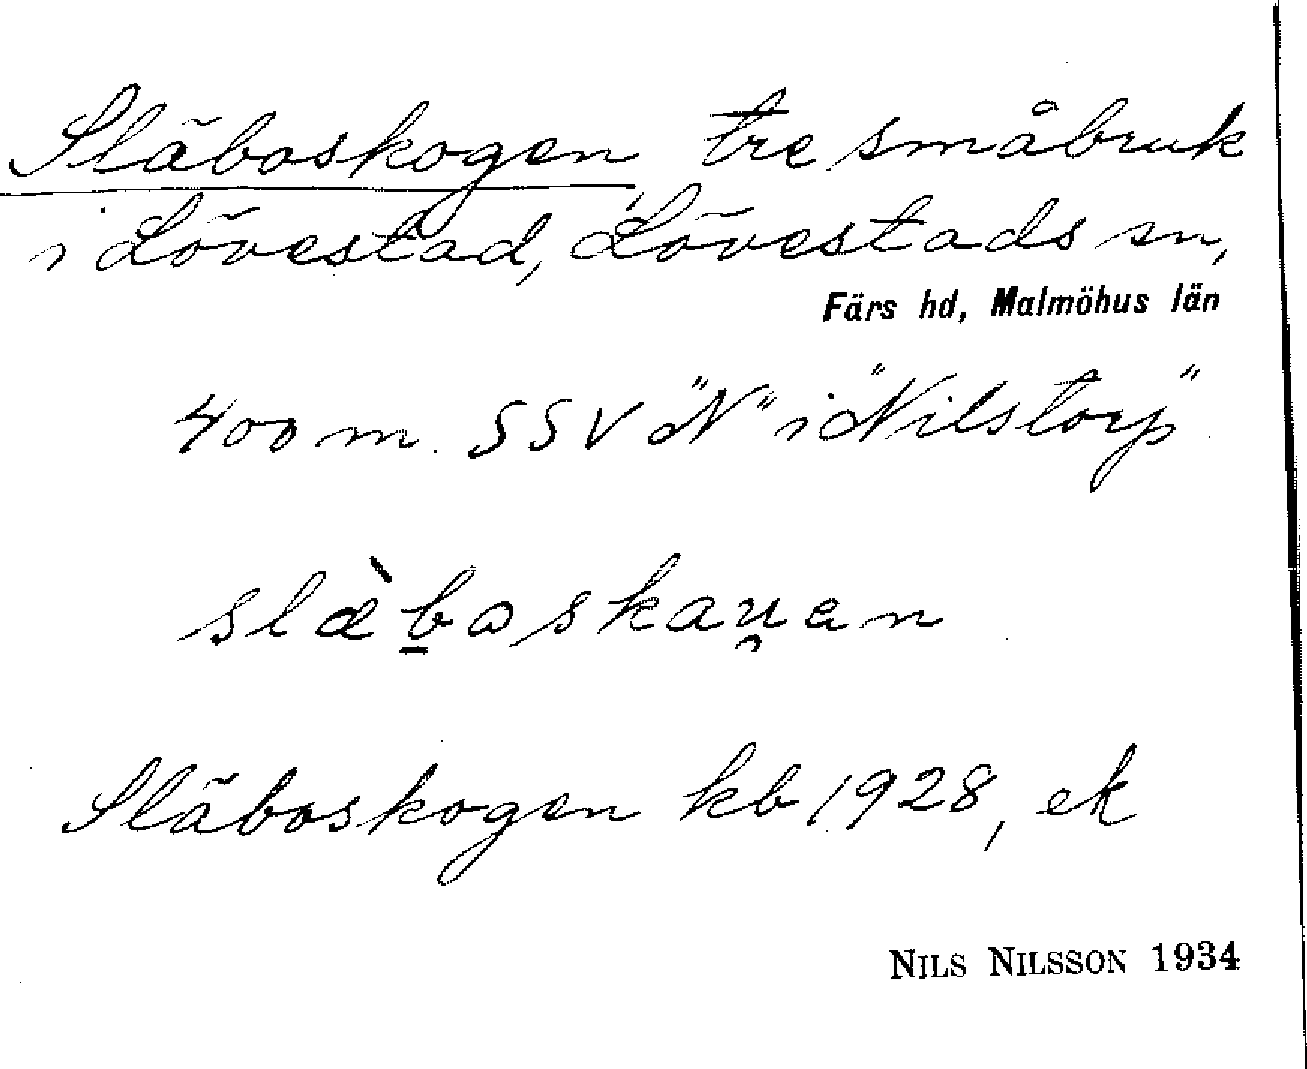 Släboskogen, tre småbruk
i Lövestad, Lövestads sn,
Färs hd, Malmöhus län
400 m SSV "N" i "Nilstorp"
slæ̀b̠oskau̯an
Släboskogen kb 1928, ek
NILS NILSSON 1934